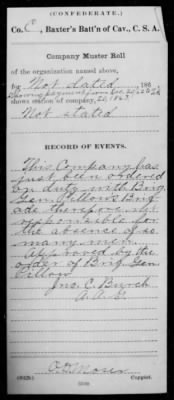 (CONFEDERATE.)
Co. C, Baxter's Batt'n of Cav., C. S. A.
Company Muster Roll
of the organization named above,
for Not stated, 186 .
shows station of company,
Not stated
RECORD OF EVENTS.
This Company has
just been ordered
on duty with Brig.
Gen. Pillow's Brig
ade therefore not
responsible for
the absence of so
many men.
Approved by the
order of Brig. Gen.
Pillow
Jno. C. Burch
A. A. G.
Moser
Copyist.